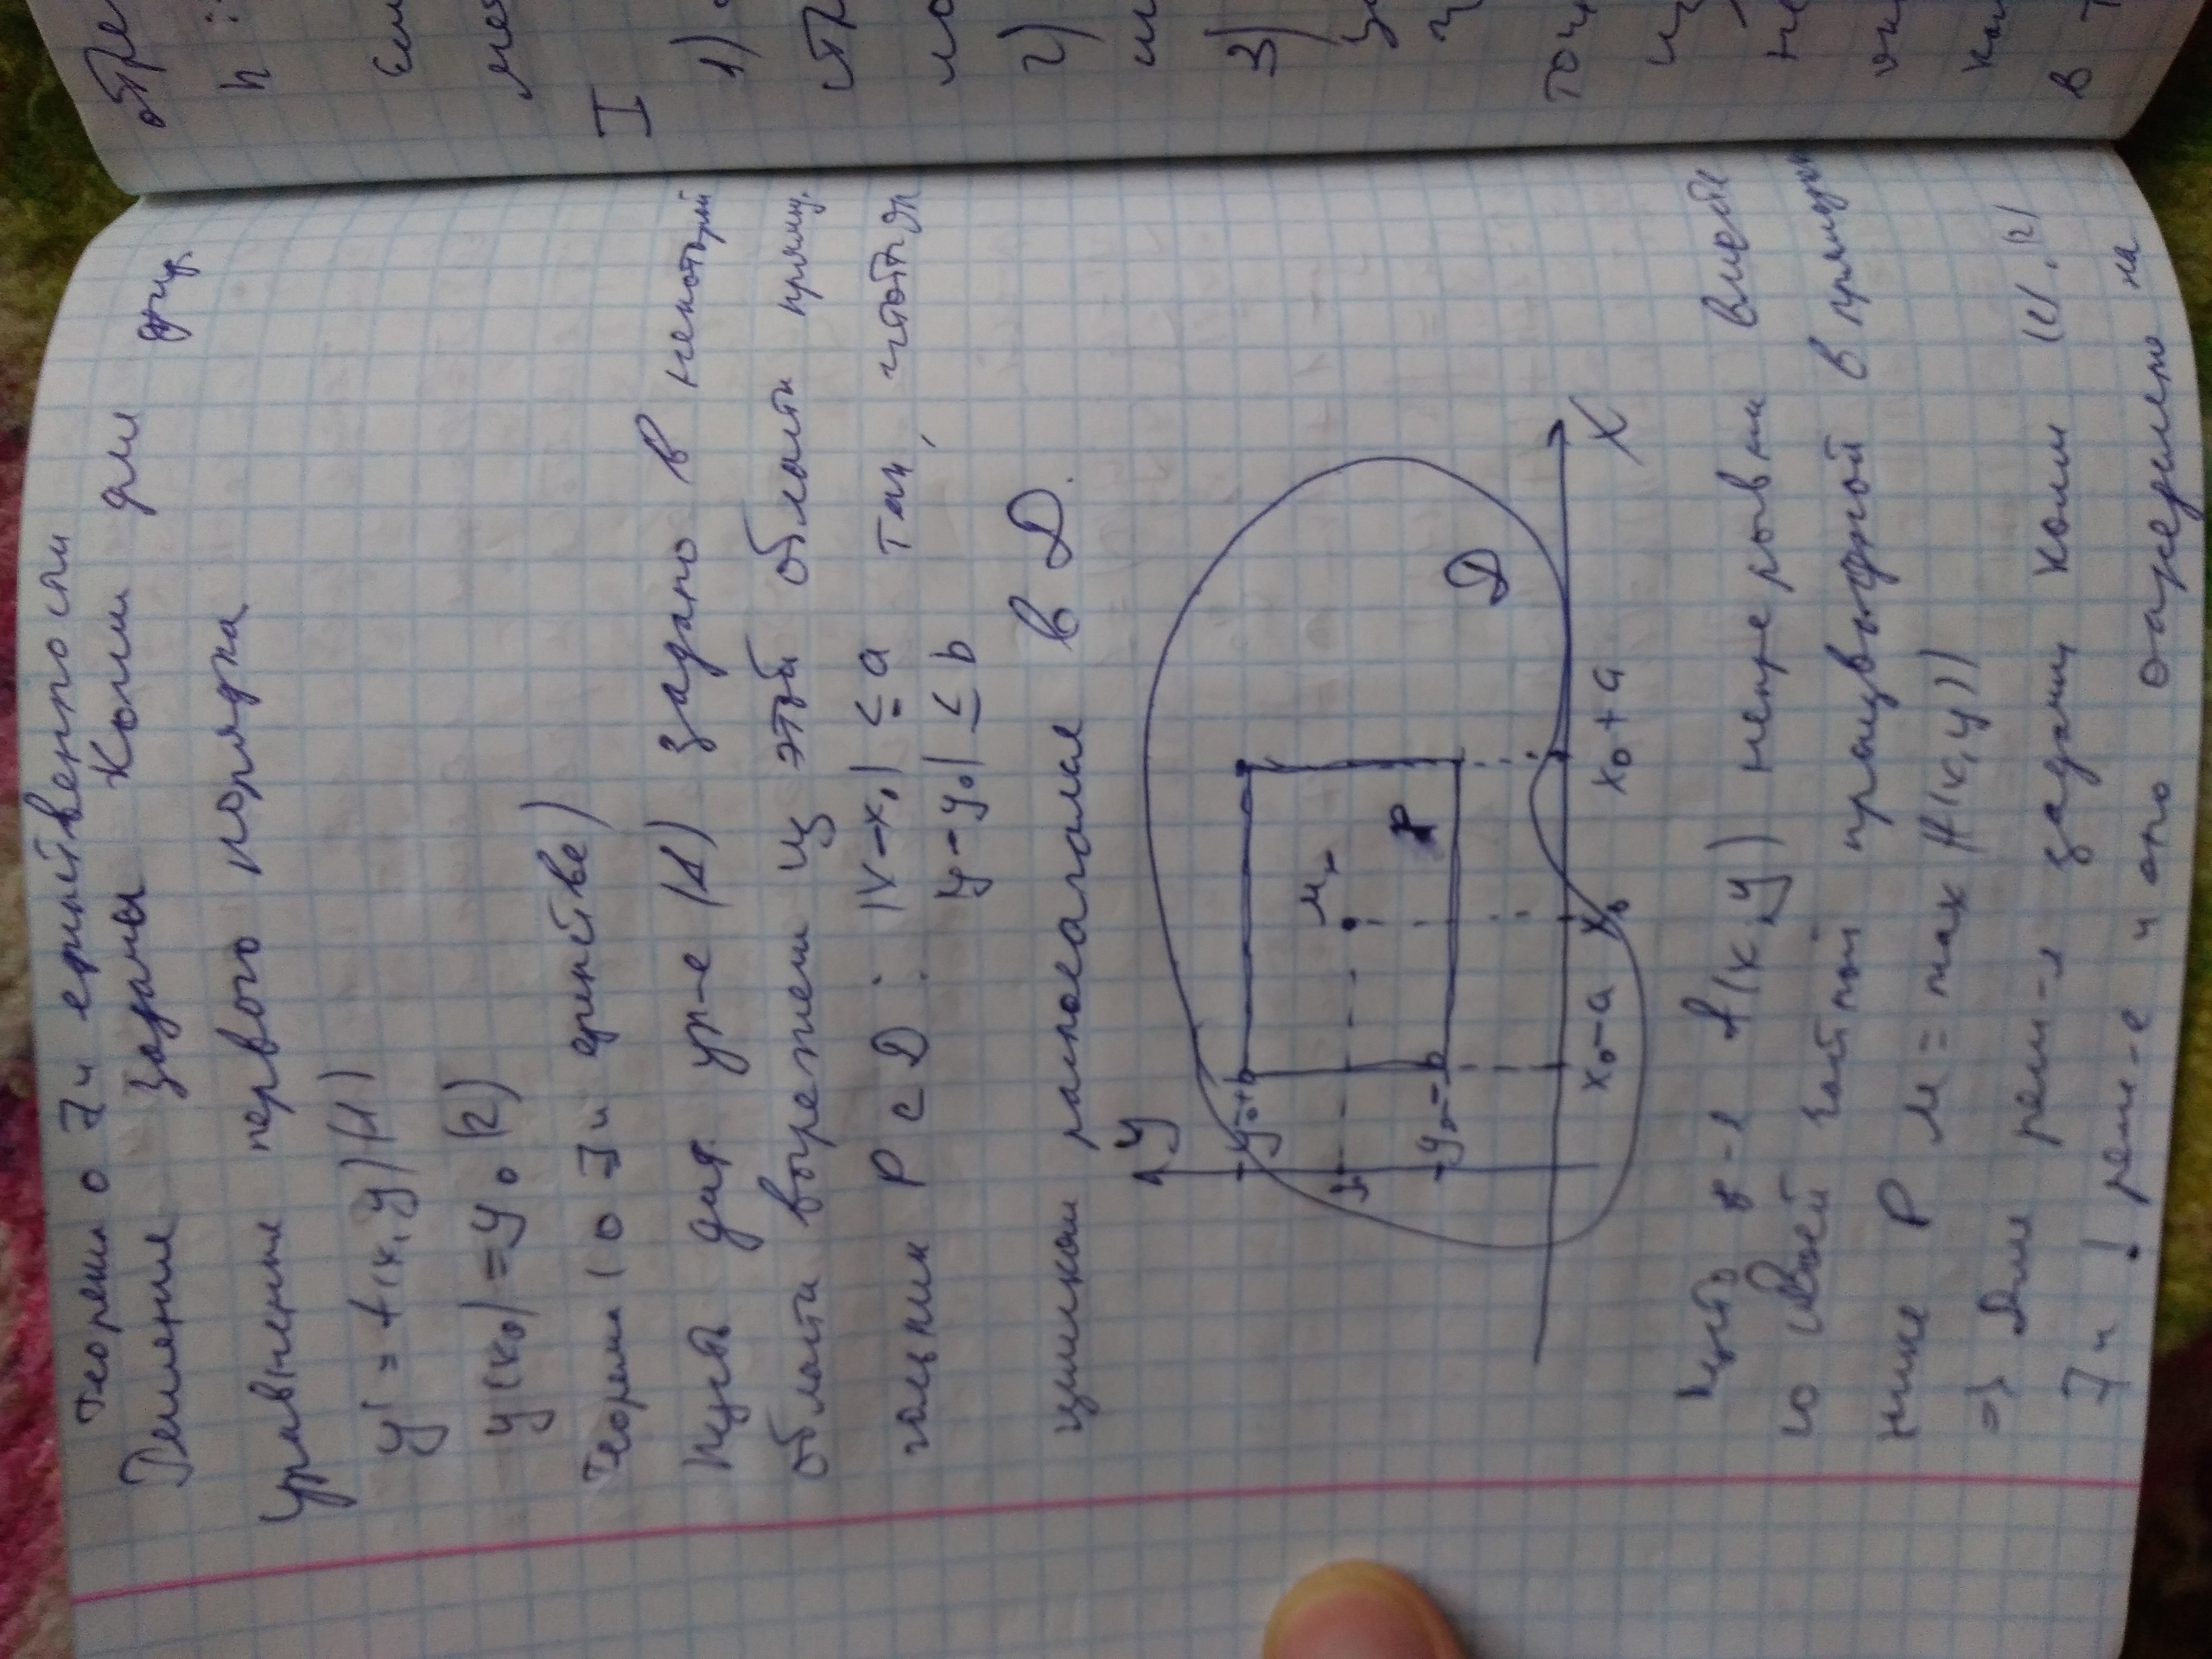 Теорема о ∃ и единственности
Решения задачи Коши для диф.
уравнения первого порядка
y' = f(x, y) (1)
y(x₀) = y₀ (2)
Теорема (о ∃ и единстве)
Пусть диф. ур-е (1) задано в некоторой
области вырежем из этой области прямоу-
гольник P ⊂ D : |x - x₀| ≤ a так, чтобы он
|y - y₀| ≤ b
целиком располагался в D.
y
y₀+b
M₀
y₀
P
y₀-b
D
x₀-a x₀ x₀+a x
Пусть ф-я f(x, y) непрерывна вместе
со своей частной производной в прямоуголь
нике P M = max |f(x, y)|
=> Для реш-я задачи Коши (1), (2)
∃ и ! реш-е и оно определено на
отре
h :
Если
I
1)
2)
3)
точ
не
в